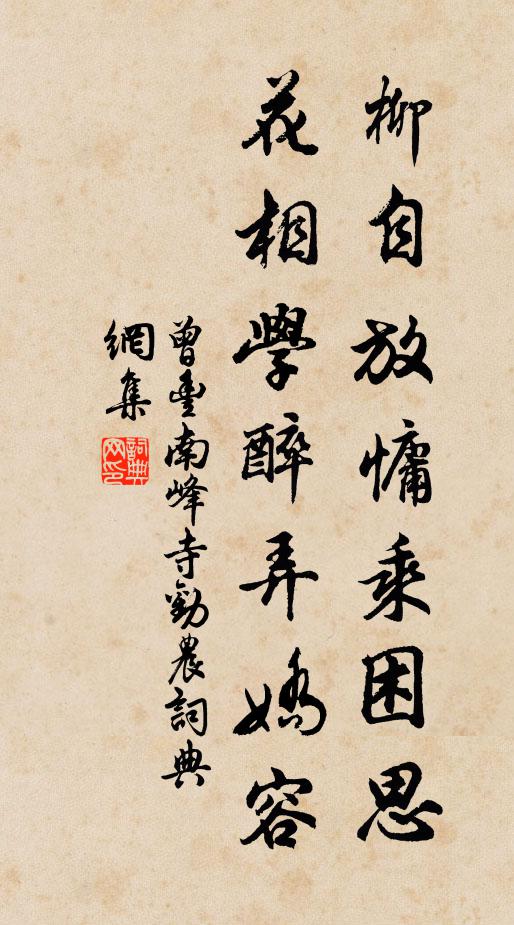 柳自放慵乘困思
花相學醉弄嬌容
曾豐南峰寺勸農詞典
網集
詞典
网印